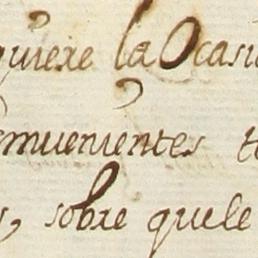 quiere la Ocasi
muenientes t
s, sobre quele